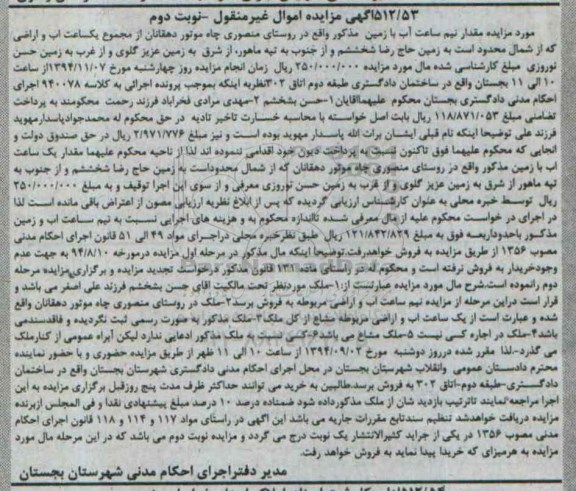 ۵۱۲/۵۳آگهی مزایده اموال غیرمنقول -نوبت دوم
مورد مزایده مقدار نیم ساعت آب با زمین مذکور واقع در روستای منصوری چاه موتور دهقانان از مجموع یکساعت آب و اراضی
که از شمال محدود است به زمین حاج رضا شخششم و از جنوب به تپه ماهور، از شرق به زمین عزیز گلوی و از غرب به زمین حسن
نوروزی مبلغ کارشناسی شده مال مورد مزایده ۲۵۰/۰۰۰/۰۰۰ ریال زمان انجام مزایده روز چهارشنبه مورخ ۱۳۹۴/۱۱/۰۷از ساعت
۱۰ الی ۱۱ بجستان واقع در ساختمان دادگستری طبقه دوم اتاق ۳۰۲نظربه اینکه بموجب پرونده اجرائی به کلاسه ۹۴۰۰۷۸ اجرای
احکام مدنی دادگستری بجستان محکوم علیهمااقایان ۱-حسن بشخشم ۲-مهدی مرادی فخرآباد فرزند رحمت محکومند به پرداخت
تضامنی مبلغ ۱۱۸/۸۷۱/۰۵۳ ریال بابت اصل خواسته با محاسبه خسارت تاخیر تادیه در حق محکوم له محمدجوادپاسدارمهوید
فرزند علی توضیحا اینکه نام قبلی ایشان برات الله پاسدار مهوید بوده است و نیز مبلغ ۲/۹۷۱/۷۷۶ ریال در حق صندوق دولت و
انجایی که محکوم علیهما فوق تاکنون نسبت به پرداخت دیون خود اقدامی ننموده اند لذا از ناحیه محکوم علیهما مقدار یک ساعت
آب با زمین مذکور واقع در روستای منصوری چاه موتور دهقانان که از شمال محدوداست به زمین حاج رضا شخششم و از جنوب به
تپه ماهور از شرق به زمین عزیز گلوی و از غرب به زمین حسن نوروزی معرفی و از سوی این اجرا توقیف و به مبلغ ۲۵۰/۰۰۰/۰۰۰
ریال توسط خبره محلی به عنوان کارشناس ارزیابی گردیده که پس از ابلاغ نظریه ارزیابی مصون از اعتراض باقی مانده است لذا
در اجرای در خواست محکوم علیه از مال معرفی شده تااندازه محکوم به و هزینه های اجرایی نسبت به نیم ساعت آب و زمین
مذکور باحدوداربعه فوق به مبلغ ۱۲۱/۸۴۲/۸۲۹ ریال طبق نظرخبره محلی دراجرای مواد ۴۹ الی ۵۱ قانون اجرای احکام مدنی
مصوب ۱۳۵۶ از طریق مزایده به فروش خواهدرفت.توضیحا اینکه مال مذکور در مرحله اول مزایده درمورخه ۹۴/۸/۱۰ به جهت عدم
وجودخریدار به فروش نرفته است و محکوم له در راستای ماده ۱۳۱ قانون مذکور درخواست تجدید مزایده و برگزاری مزایده مرحله
دوم رانموده است.شرح مال مورد مزایده عبارتست از:۱-ملک موردنظر تحت مالکیت اقای حسن بشخشم فرزند علی اصغر می باشد و
قرار است دراین مرحله از مزایده نیم ساعت آب و اراضی مربوطه به فروش برسد۲-ملک در روستای منصوری چاه موتور دهقانان واقع
شده و عبارت است از یک ساعت آب و اراضی مربوطه مشاع از کل ملک۳-ملک مذکور به صورت رسمی ثبت نگردیده و فاقدسندمی
باشد۴-ملک در اجاره کسی نیست ۵-ملک مشاع می باشد۶-کسی نسبت به ملک مذکور ادعایی ندارد لیکن آبراه عمومی از کنارملک
می گذرد.لذا مقرر شده درروز دوشنبه مورخ ۱۳۹۴/۰۹/۰۲ از ساعت ۱۰ الی ۱۱ ظهر از طریق مزایده حضوری و با حضور نماینده
محترم دادستان عمومی وانقلاب شهرستان بجستان در محل اجرای احکام مدنی دادگستری شهرستان بجستان واقع در ساختمان
دادگستری-طبقه دوم-اتاق ۳۰۲ به فروش برسد.طالبین به خرید می توانند حداکثر ظرف مدت پنج روزقبل برگزاری مزایده به این
اجرا مراجعه نمایند تاترتیب بازدید شان از ملک مذکورداده شود ضمناده درصد ۱۰ درصد مبلغ پیشنهادی نقدا و فی المجلس ازبرنده
مزایده دریافت خواهدشد تنظیم سندتابع مقررات جاریه می باشد این آگهی در راستای مواد ۱۱۷ و ۱۱۴ و ۱۱۸ قانون اجرای احکام
مدنی مصوب ۱۳۵۶ در یکی از جراید کثیرالانتشار یک نوبت درج می گردد و مزایده نوبت دوم می باشد که در این مرحله مال مورد
مزایده به هرمیزای که خریدا پیدا نماید به فروش خواهد رفت.
مدیر دفتراجرای احکام مدنی شهرستان بجستان